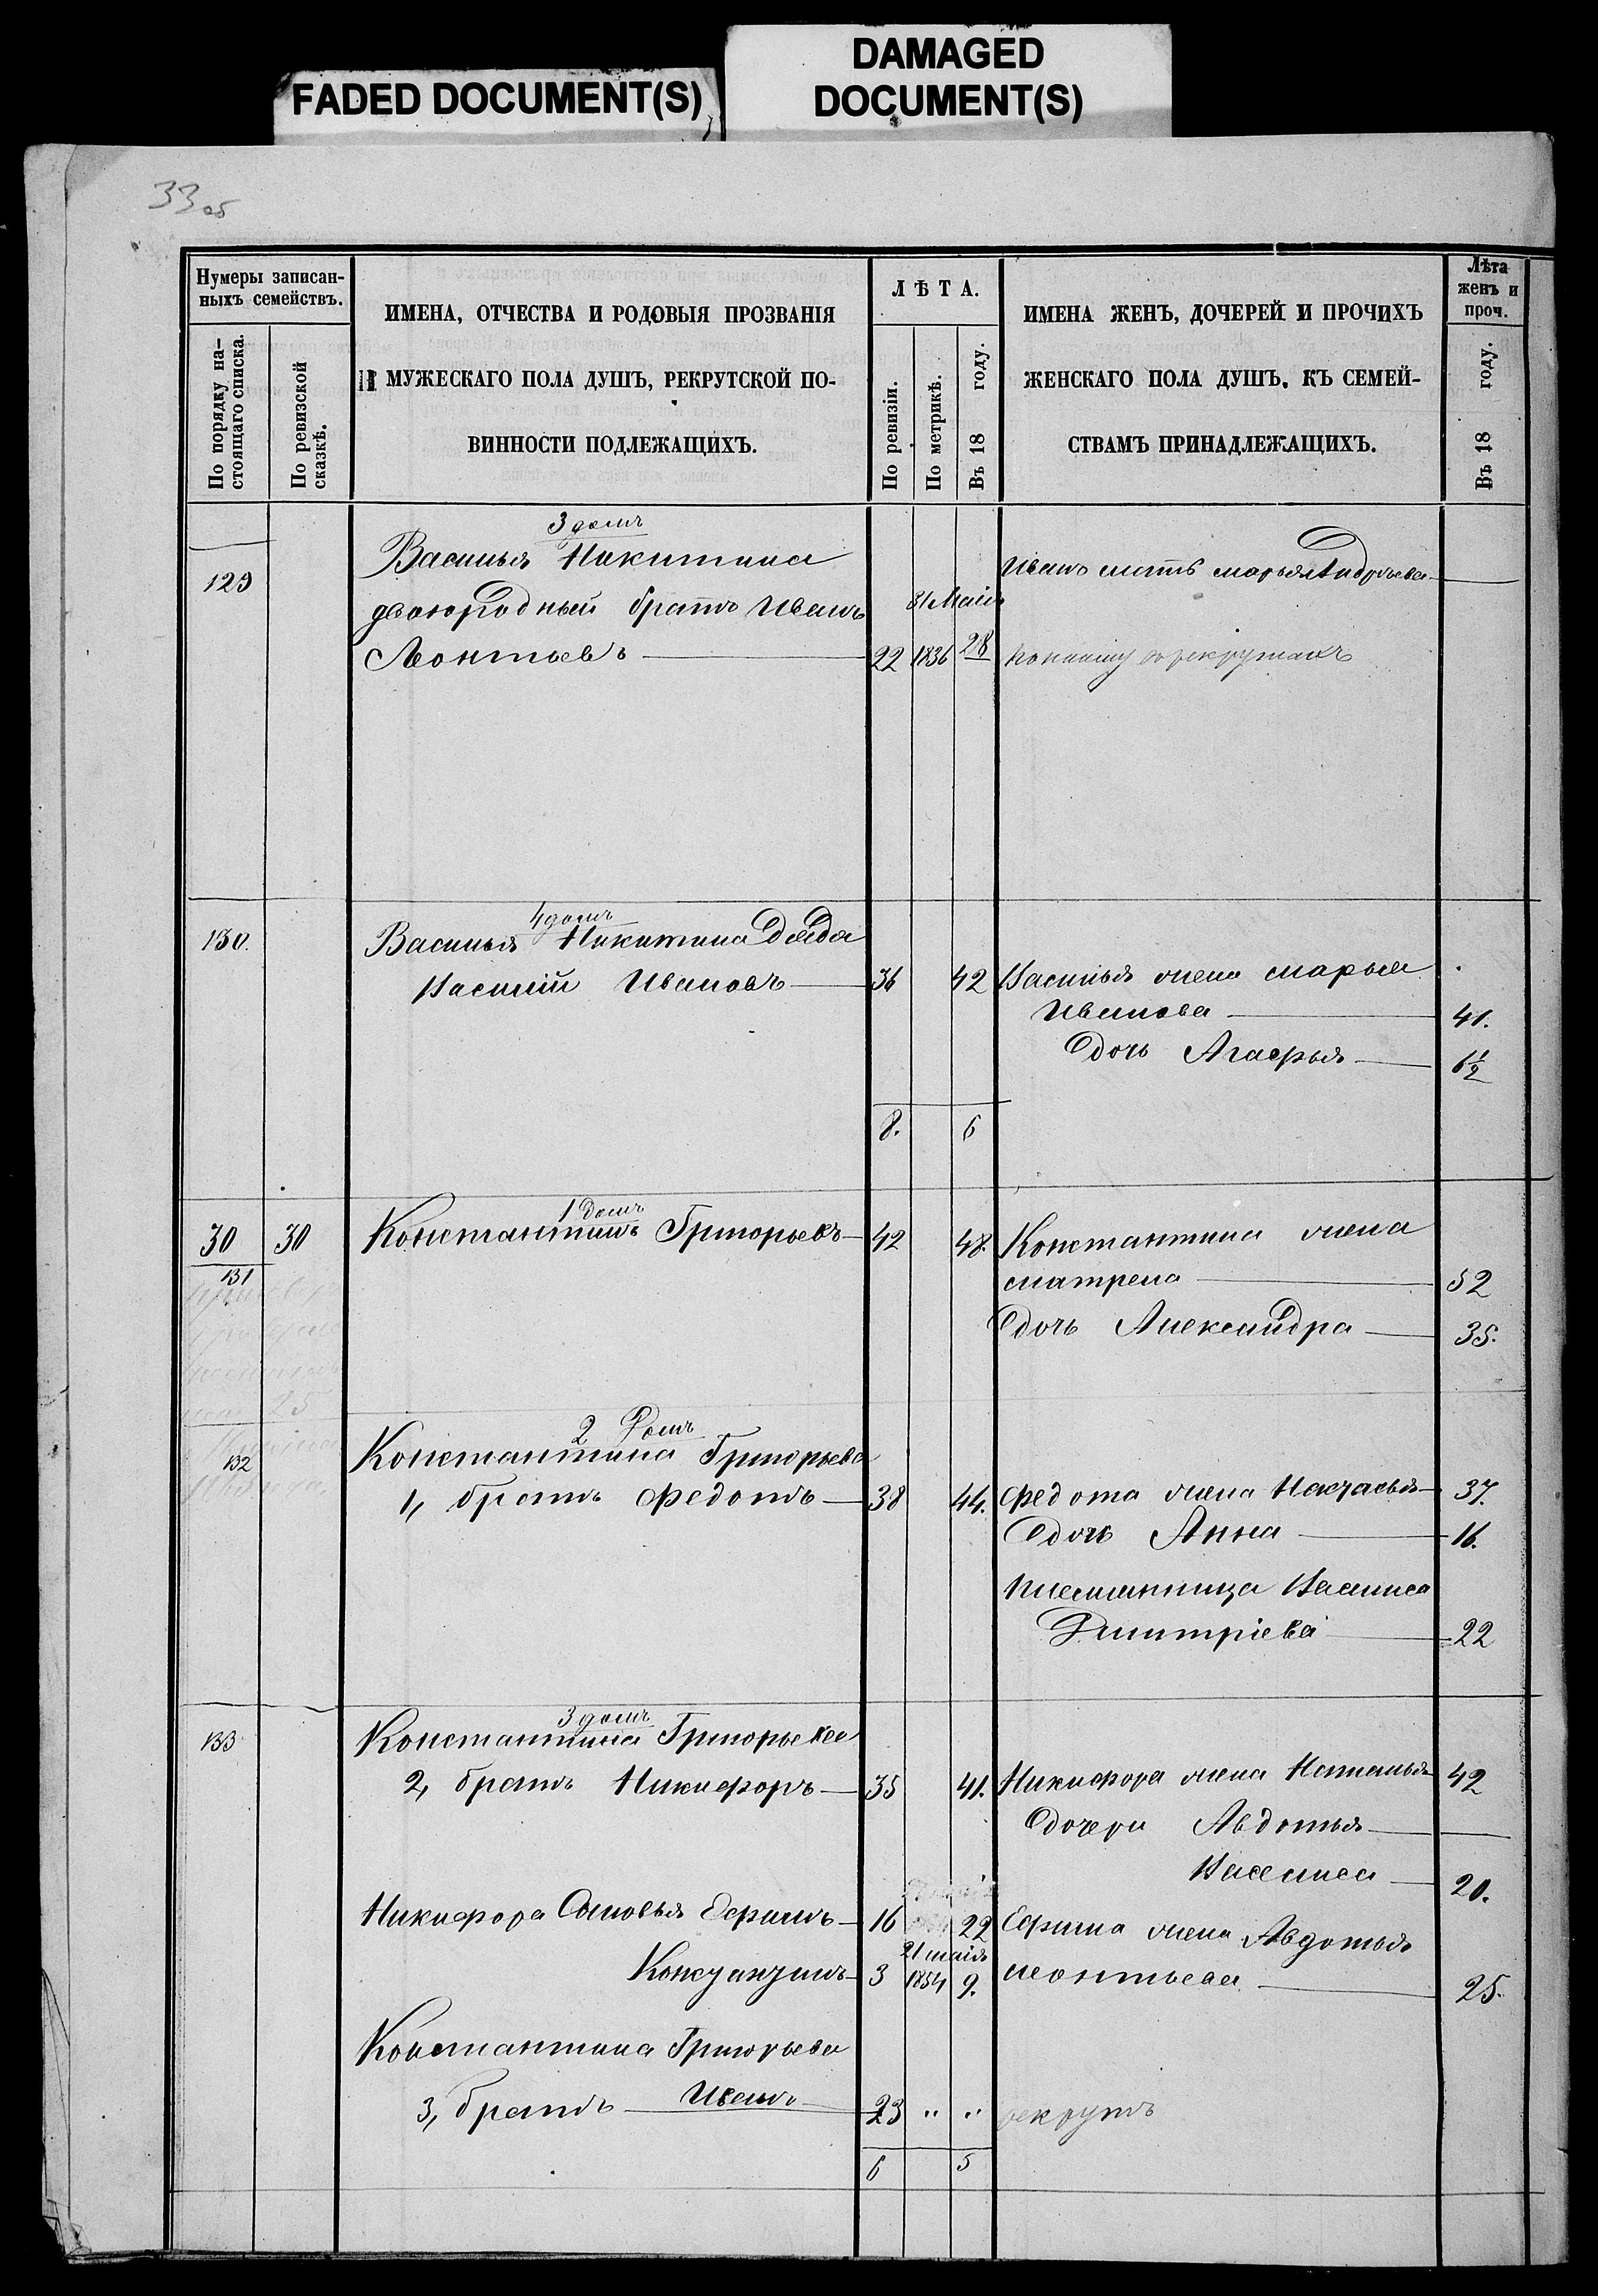 FADED DOCUMENT(S)
DAMAGED
DOCUMENT(S)
33 об
Нумеры записан-
ныхъ семействъ.
По порядку на-
стоящаго списка.
По ревизской
сказкѣ.
ИМЕНА, ОТЧЕСТВА И РОДОВЫЯ ПРОЗВАНІЯ
МУЖЕСКАГО ПОЛА ДУШЪ, РЕКРУТСКОЙ ПО-
ВИННОСТИ ПОДЛЕЖАЩИХЪ.
ЛѢТА.
По ревизіи.
По метрикѣ.
Въ 18 году.
ИМЕНА ЖЕНЪ, ДОЧЕРЕЙ И ПРОЧИХЪ
ЖЕНСКАГО ПОЛА ДУШЪ, КЪ СЕМЕЙ-
СТВАМЪ ПРИНАДЛЕЖАЩИХЪ.
Лѣта
женъ и
проч.
Въ 18 году.
3 домъ
129 Василья Никитина
Ивана мать Марья Андреева —
двоюродный братъ Иванъ 31 Маія
Леонтьевъ — 22 1836 28 по найму въ рекрутахъ
4 домъ
130. Василья Никитина дядя
Василій Ивановъ — 36 42 Василья жена Марья
Иванова — 41.
дочь Агафья — 6½
8. 6
1 домъ
30 30 Константинъ Григорьевъ — 42 48. Константина жена
131 Матрена — 52
дочь Александра — 35.
25
2 домъ
132 Константина Григорьева
1, братъ Федотъ — 38 44. Федота жена Настасья — 37.
дочь Анна — 16.
племянница Василиса
Дмитріева — 22
3 домъ
133 Константина Григорьева
2, братъ Никифоръ — 35 41. Никифора жена Наталья 42
дочери Авдотья —
Василиса — 20.
Никифора сыновья Ефимъ — 16 22 Ефима жена Авдотья
21 маія
3 1854 9. Леонтьева — 25.
Константина Григорьева
3, братъ — Иванъ — 23 " " рекрутъ
6 5